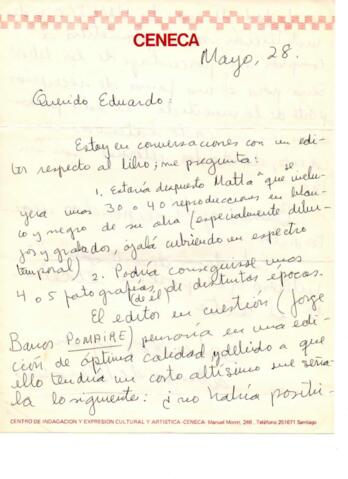 CENECA
Mayo, 28.
Querido Eduardo:
Estoy en conversaciones con un edi-
tor respecto al libro; me pregunta:
1. Estaría dispuesto Matta a que se inclu-
yera unos 30 o 40 reproducciones en blan-
co y negro de su obra (especialmente dibu-
jos y grabados, ojalá cubriendo un espectro
temporal) 2. Podría conseguirse unas
4 o 5 fotografías (de él) de distintas épocas.
El editor en cuestión (Jorge
Barros POMAIRE) pensaría en una edi-
ción de óptima calidad y debido a que
ello tendría un costo altísimo me seña-
la lo siguiente: ¿no habría positi-
CENTRO DE INDAGACION Y EXPRESION CULTURAL Y ARTISTICA -CENECA- Manuel Montt, 246 , Teléfono 251671 Santiago